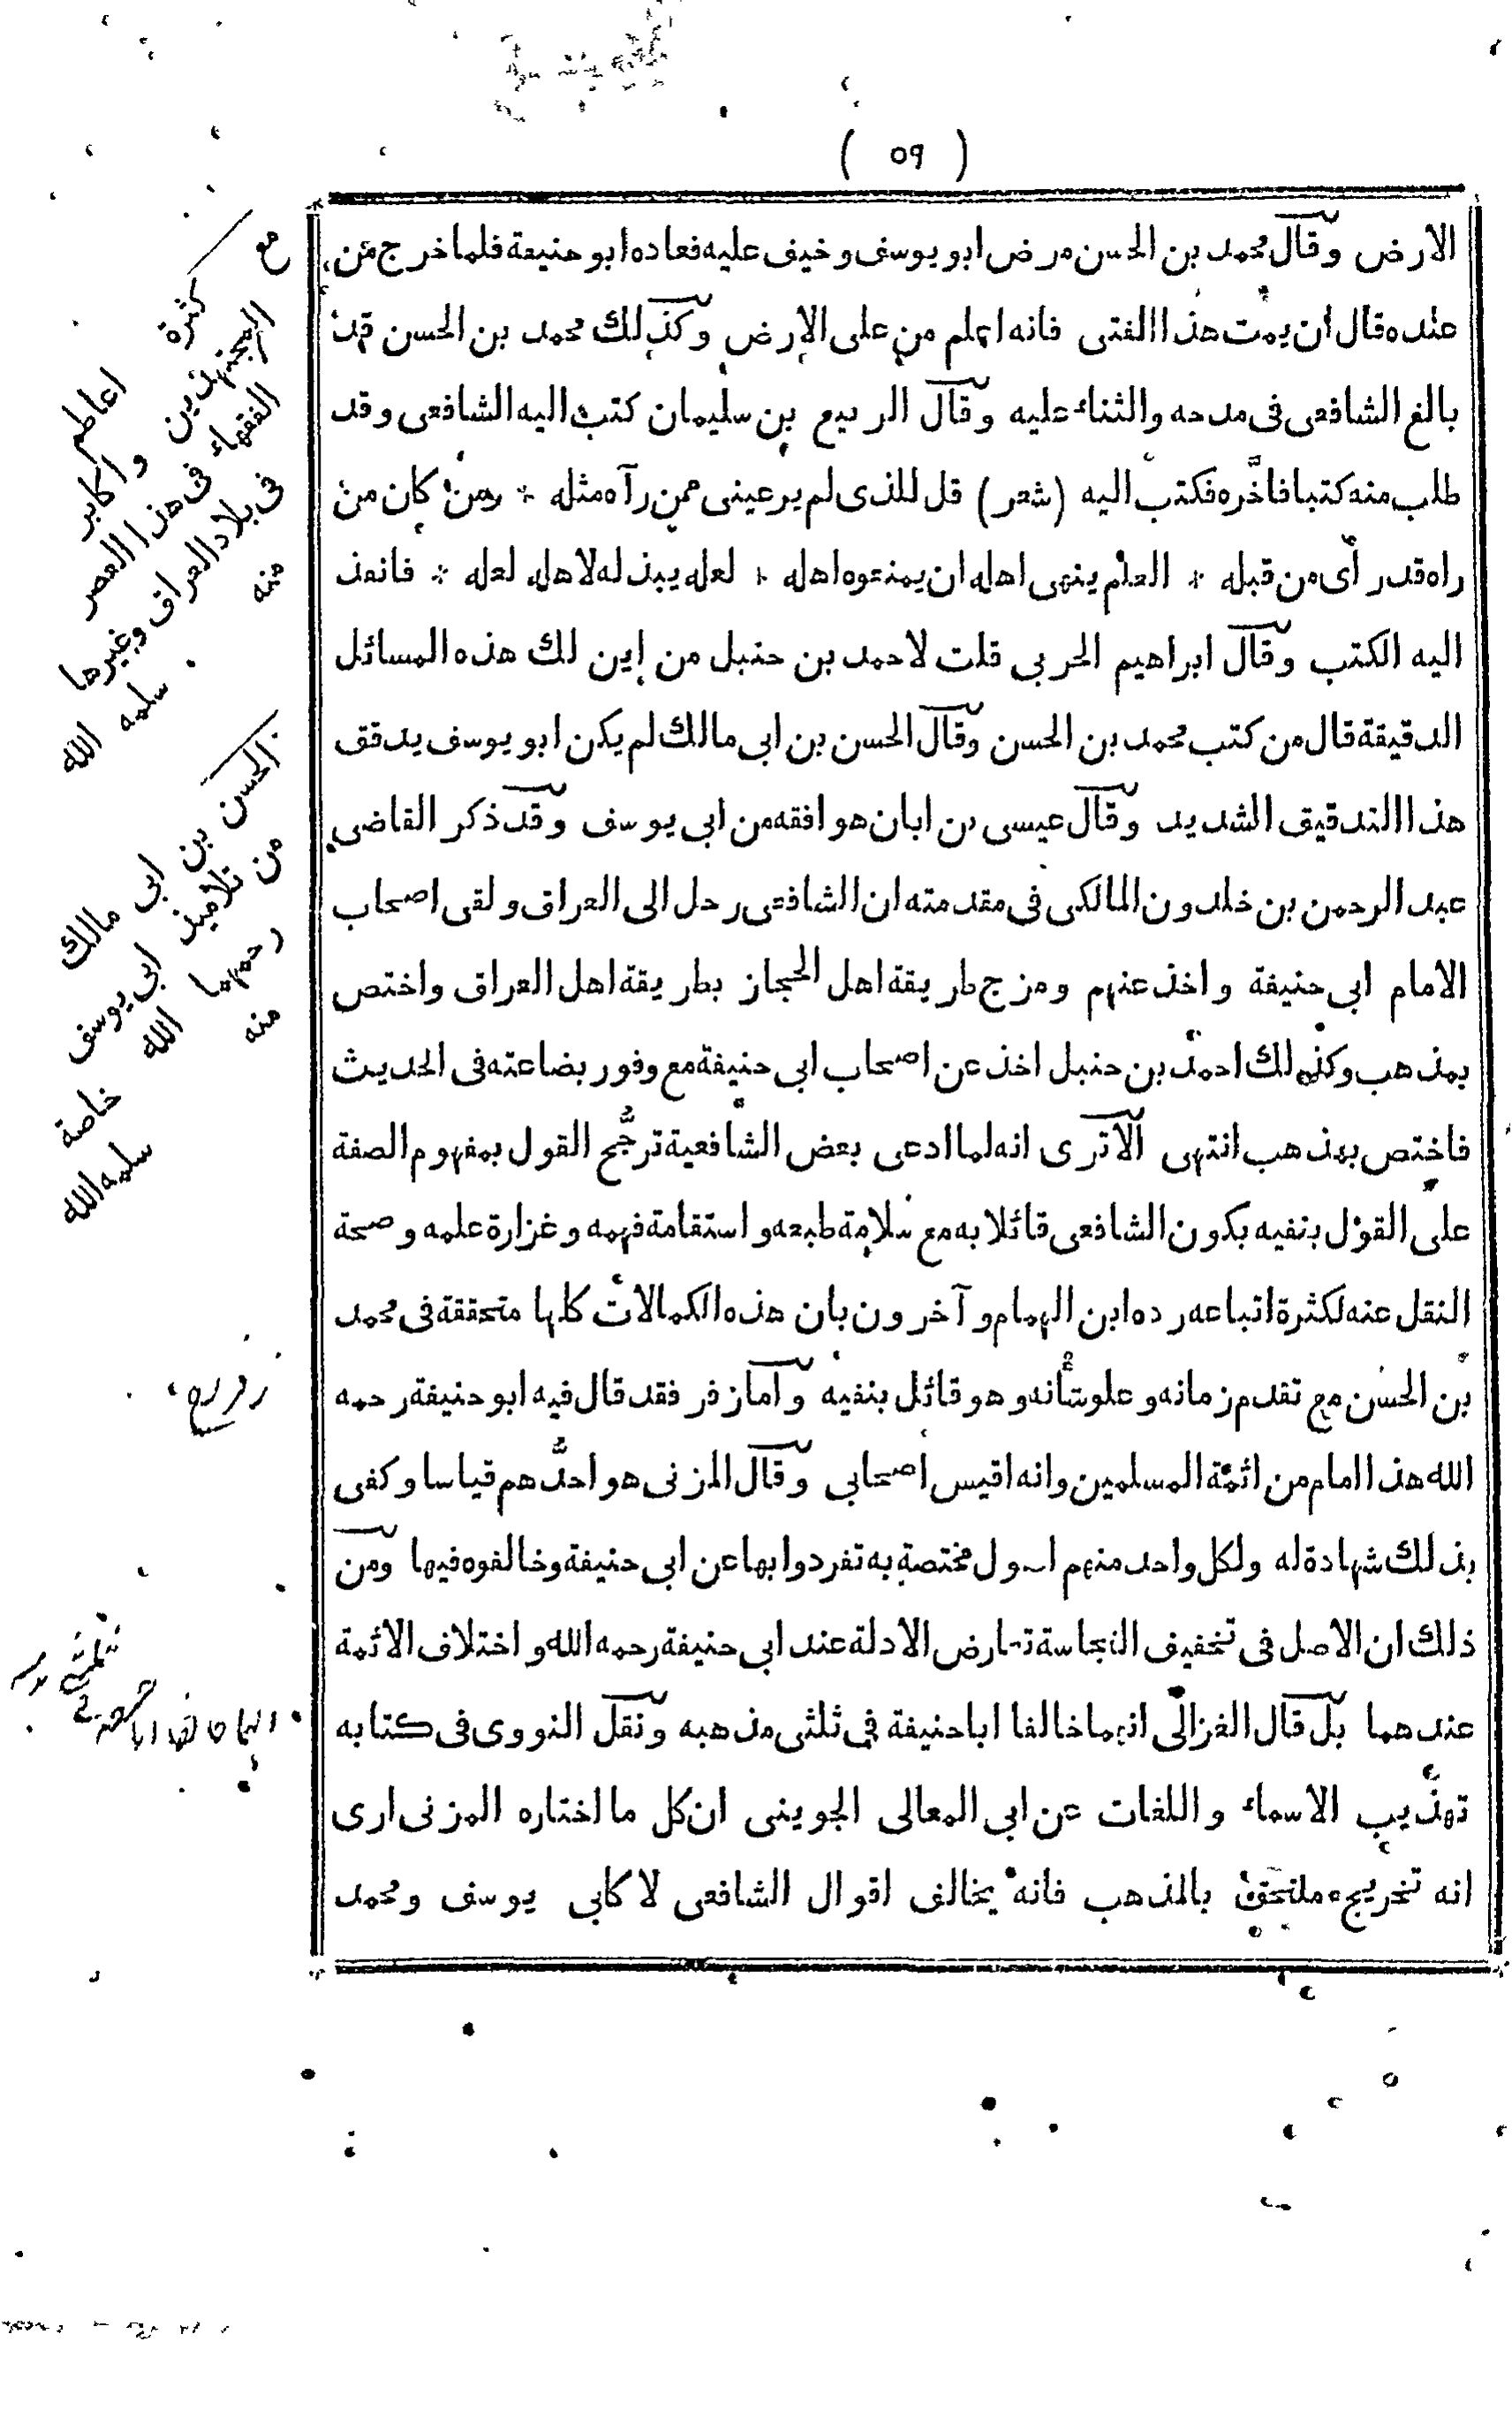 ( ٥٩ )
الارض وقال محمد بن الحسن مرض ابو يوسف وخيف عليه فعاده ابو حنيفة فلما خرج من
عنده قال ان يمت هذا الفتى فانه اعلم من على الارض وكذلك محمد بن الحسن قد
بالغ الشافعى فى مدحه والثناء عليه وقال الربيع بن سليمان كتب اليه الشافعى وقد
طلب منه كتبا فاخره فكتب اليه (شعر) قل للذى لم ير عينى ممن رآه مثله * ومن كان من
راه قد رأى من قبله * العلم ينهى اهله ان يمنعوه اهله * لعله يبذله لاهله لعله * فانفذ
اليه الكتب وقال ابراهيم الحربى قلت لاحمد بن حنبل من اين لك هذه المسائل
الدقيقة قال من كتب محمد بن الحسن وقال الحسن بن ابى مالك لم يكن ابو يوسف يدقق
هذا التدقيق الشديد وقال عيسى بن ابان هو افقه من ابى يوسف وقد ذكر القاضى
عبد الرحمن بن خلدون المالكى فى مقدمته ان الشافعى رحل الى العراق ولقى اصحاب
الامام ابى حنيفة واخذ عنهم ومزج طريقة اهل الحجاز بطريقة اهل العراق واختص
بمذهب وكذلك احمد بن حنبل اخذ عن اصحاب ابى حنيفة مع وفور بضاعته فى الحديث
فاختص بمذهب انتهى الا ترى انه لما ادعى بعض الشافعية ترجح القول بمفهوم الصفة
على القول بنفيه بكون الشافعى قائلا به مع سلامة طبعه واستقامة فهمه وغزارة علمه وصحة
النقل عنه لكثرة اتباعه رده ابن الهمام وآخرون بان هذه الكمالات كلها متحققة فى محمد
بن الحسن مع تقدم زمانه وعلو شأنه وهو قائل بنفيه واما زفر فقد قال فيه ابو حنيفة رحمه
الله هذا امام من ائمة المسلمين وانه اقيس اصحابى وقال المزنى هو احدهم قياسا وكفى
بذلك شهادة له ولكل واحد منهم اصول مختصة به تفردوا بها عن ابى حنيفة وخالفوه فيها ومن
ذلك ان الاصل فى تخفيف النجاسة تعارض الادلة عند ابى حنيفة رحمه الله واختلاف الائمة
عندهما بل قال الغزالى انهما خالفا ابا حنيفة فى ثلثى مذهبه ونقل النووى فى كتابه
تهذيب الاسماء واللغات عن ابى المعالى الجوينى ان كل ما اختاره المزنى ارى
انه تخريج ملتحق بالمذهب فانه يخالف اقوال الشافعى لا كابى يوسف ومحمد
مع كثرة اعاظم
المجتهدين واكابر
الفقهاء فى هذا العصر
فى بلاد العراق وغيرها
منه سلمه الله
الحسن بن ابى مالك
من تلاميذ ابى يوسف
رحمهما الله خاصة
منه سلمه الله
زفر رح